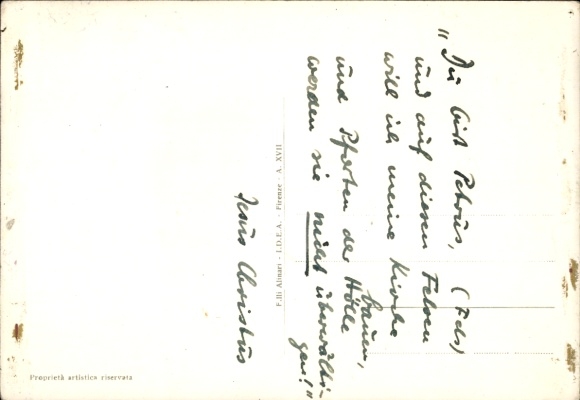 "Du bist Petrus, (Fels)
und auf diesen Felsen
will ich meine Kirche
bauen,
und Pforten der Hölle
werden sie nicht überwälti-
gen!"
Jesus Christus
F.lli Alinari - I.D.E.A. - Firenze - A. XVII
Proprietà artistica riservata